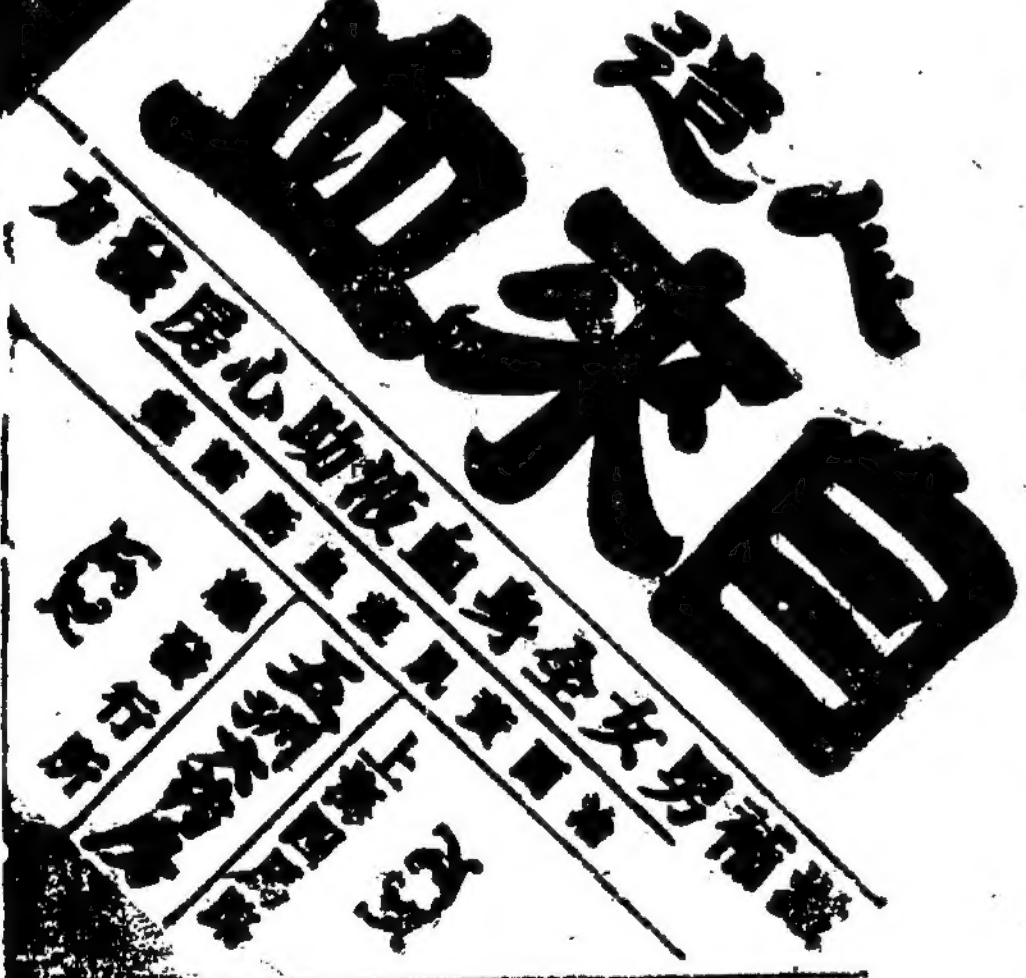 人造
自來血
滋補男女全身血液助心房發力
上海四馬路
五洲大藥房
總發行所